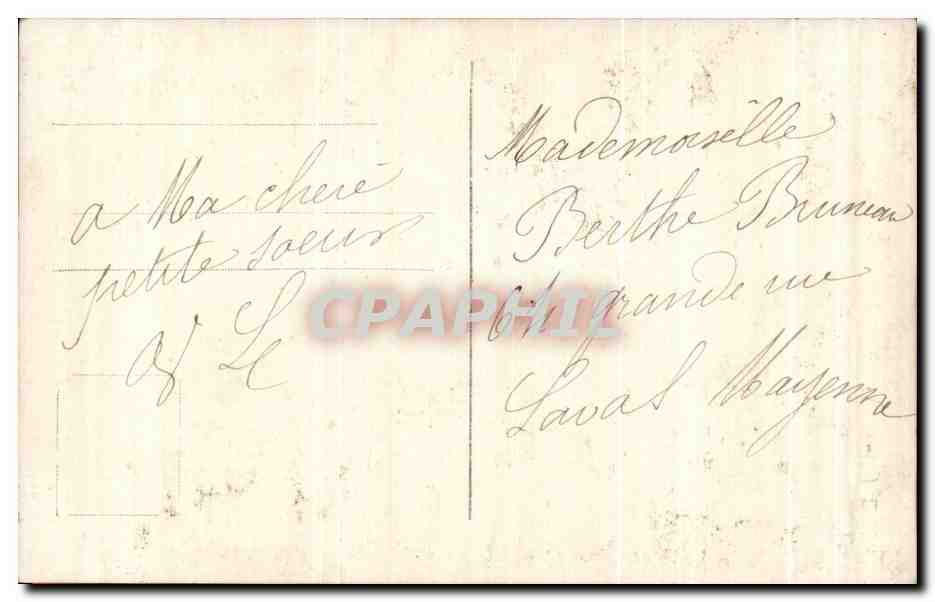 a Ma chere
petite soeur
L
Mademoiselle
Berthe Bruneau
64 grande rue
Laval Mayenne
CPAPHIL